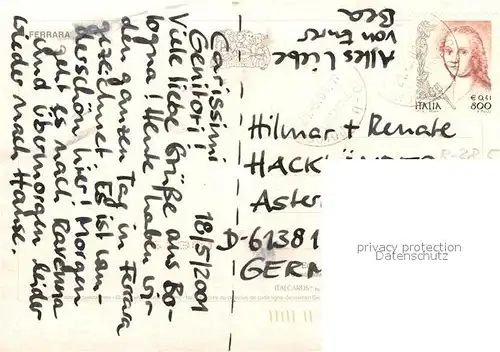 FERRARA
Carissimi
Genitori! 18/5/2001
Viele liebe Grüße aus Bo-
logna! Heute haben wir
den ganzen Tag in Ferrara
gezeichnet. Es ist wun-
derschön hier! Morgen
geht es nach Ravenna
und übermorgen leider
wieder nach Hause.
Alles Liebe
von Eurer
Bea
ITALIA
€ 0,41
800
Hilmar + Renate
HACK
Aster
D-61381
GERM
R-28 E
privacy protection
Datenschutz
ITALCARDS